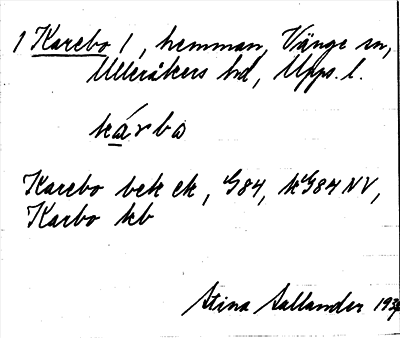 1 Karebo 1, hemman, Vänge sn,
Ulleråkers hd, Upps. l.
kárbo
Karebo bek ek, G84, kG84 NV,
Karbo kb
Stina Sallander